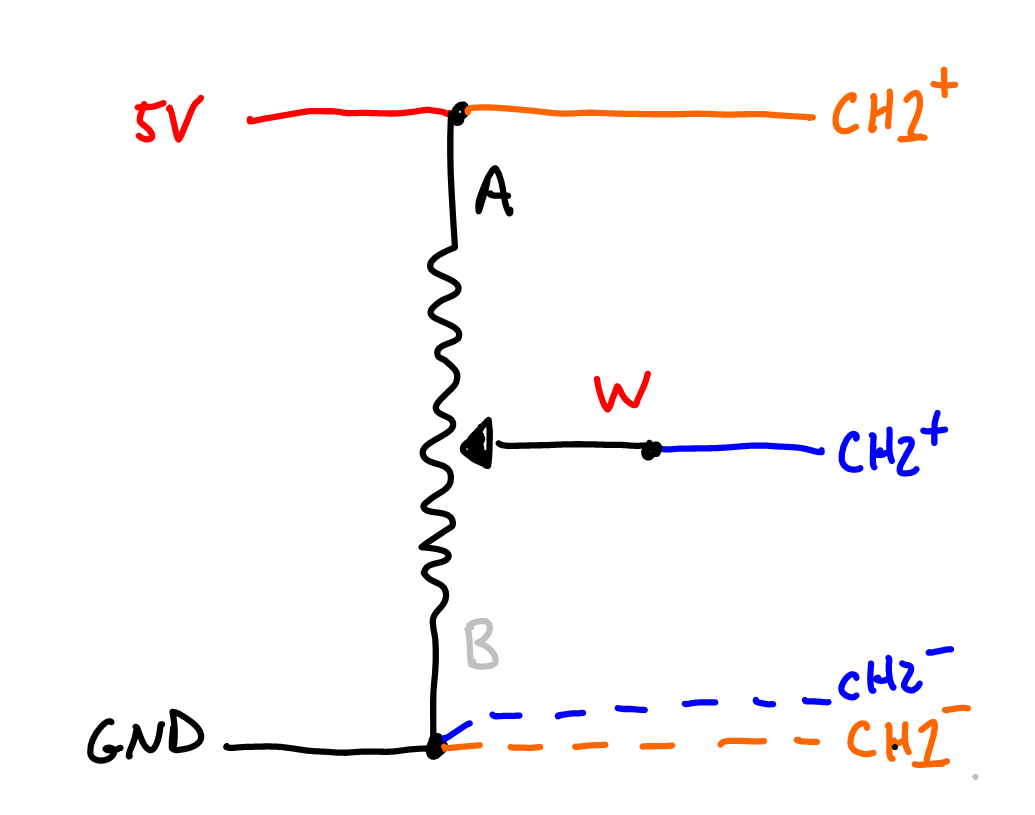 5V
CH1+
A
W
CH2+
B
CH2-
GND
CH1-